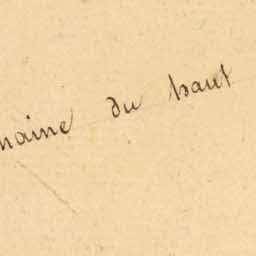 maine du haut